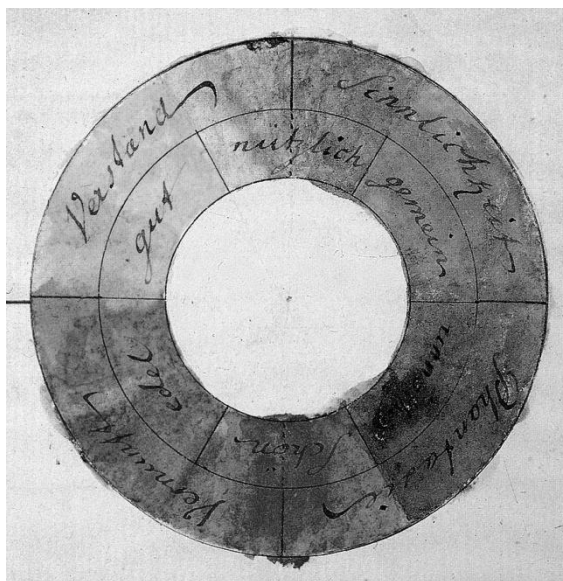 Verstand
Sinnlichkeit
Phantasie
Vernunft
nützlich
gemein
Schön
edel
gut